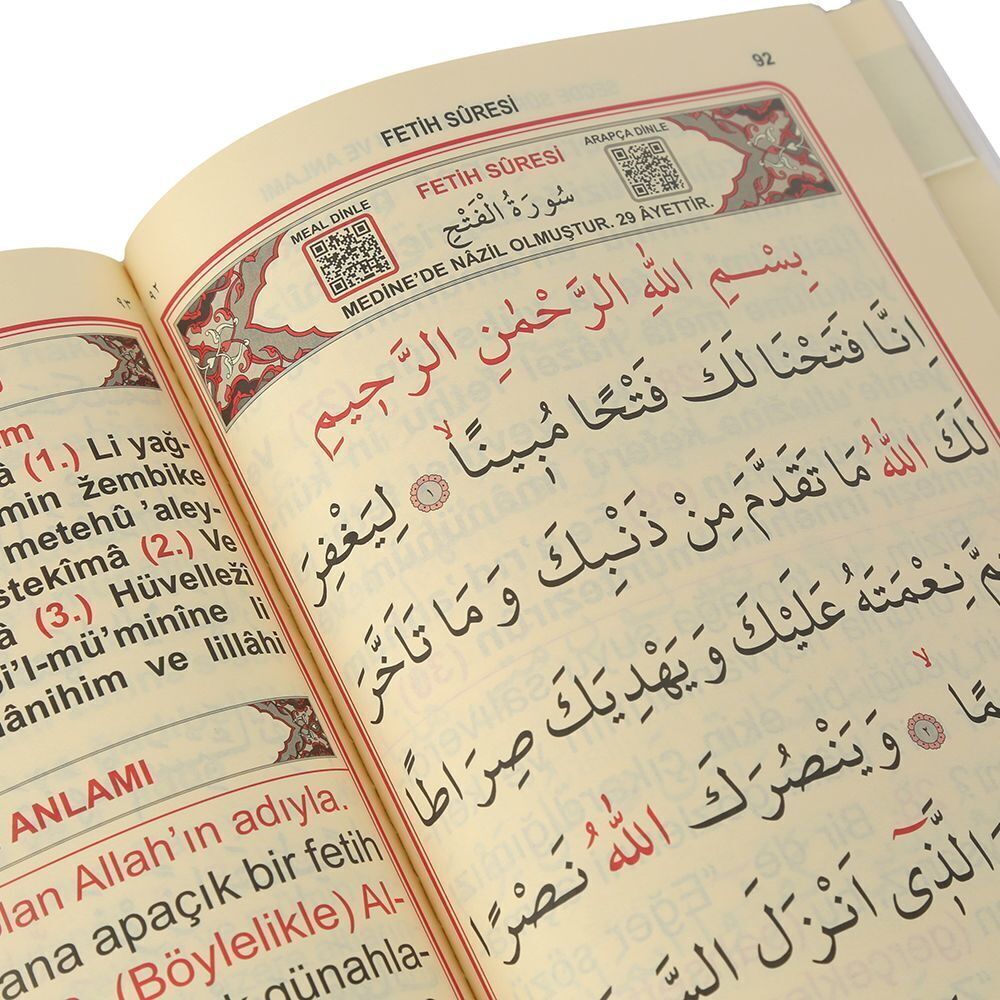 92
FETİH SÛRESİ
MEAL DİNLE
FETİH SÛRESİ
ARAPÇA DİNLE
سُورَةُ الْفَتْحِ
MEDİNE'DE NÂZİL OLMUŞTUR. 29 ÂYETTİR.
بِسْمِ اللّٰهِ الرَّحْمٰنِ الرَّحِيمِ
اِنَّا فَتَحْنَا لَكَ فَتْحًا مُبِينًاۙ ﴿١﴾ لِيَغْفِرَ
لَكَ اللّٰهُ مَا تَقَدَّمَ مِنْ ذَنْبِكَ وَمَا تَاَخَّرَ
نِعْمَتَهُ عَلَيْكَ وَيَهْدِيَكَ صِرَاطًا
ۙ ﴿٢﴾ وَيَنْصُرَكَ اللّٰهُ نَصْرًا
الَّذٖٓى اَنْزَلَ
(1.) Li yağ-
min žembike
metehû 'aley-
stekîmâ (2.) Ve
(3.) Hüvelležî
bi'l-mü'minîne li
mânihim ve lillâhi
ANLAMI
olan Allah'ın adıyla.
sana apaçık bir fetih
(Böylelikle) Al-
günahla-